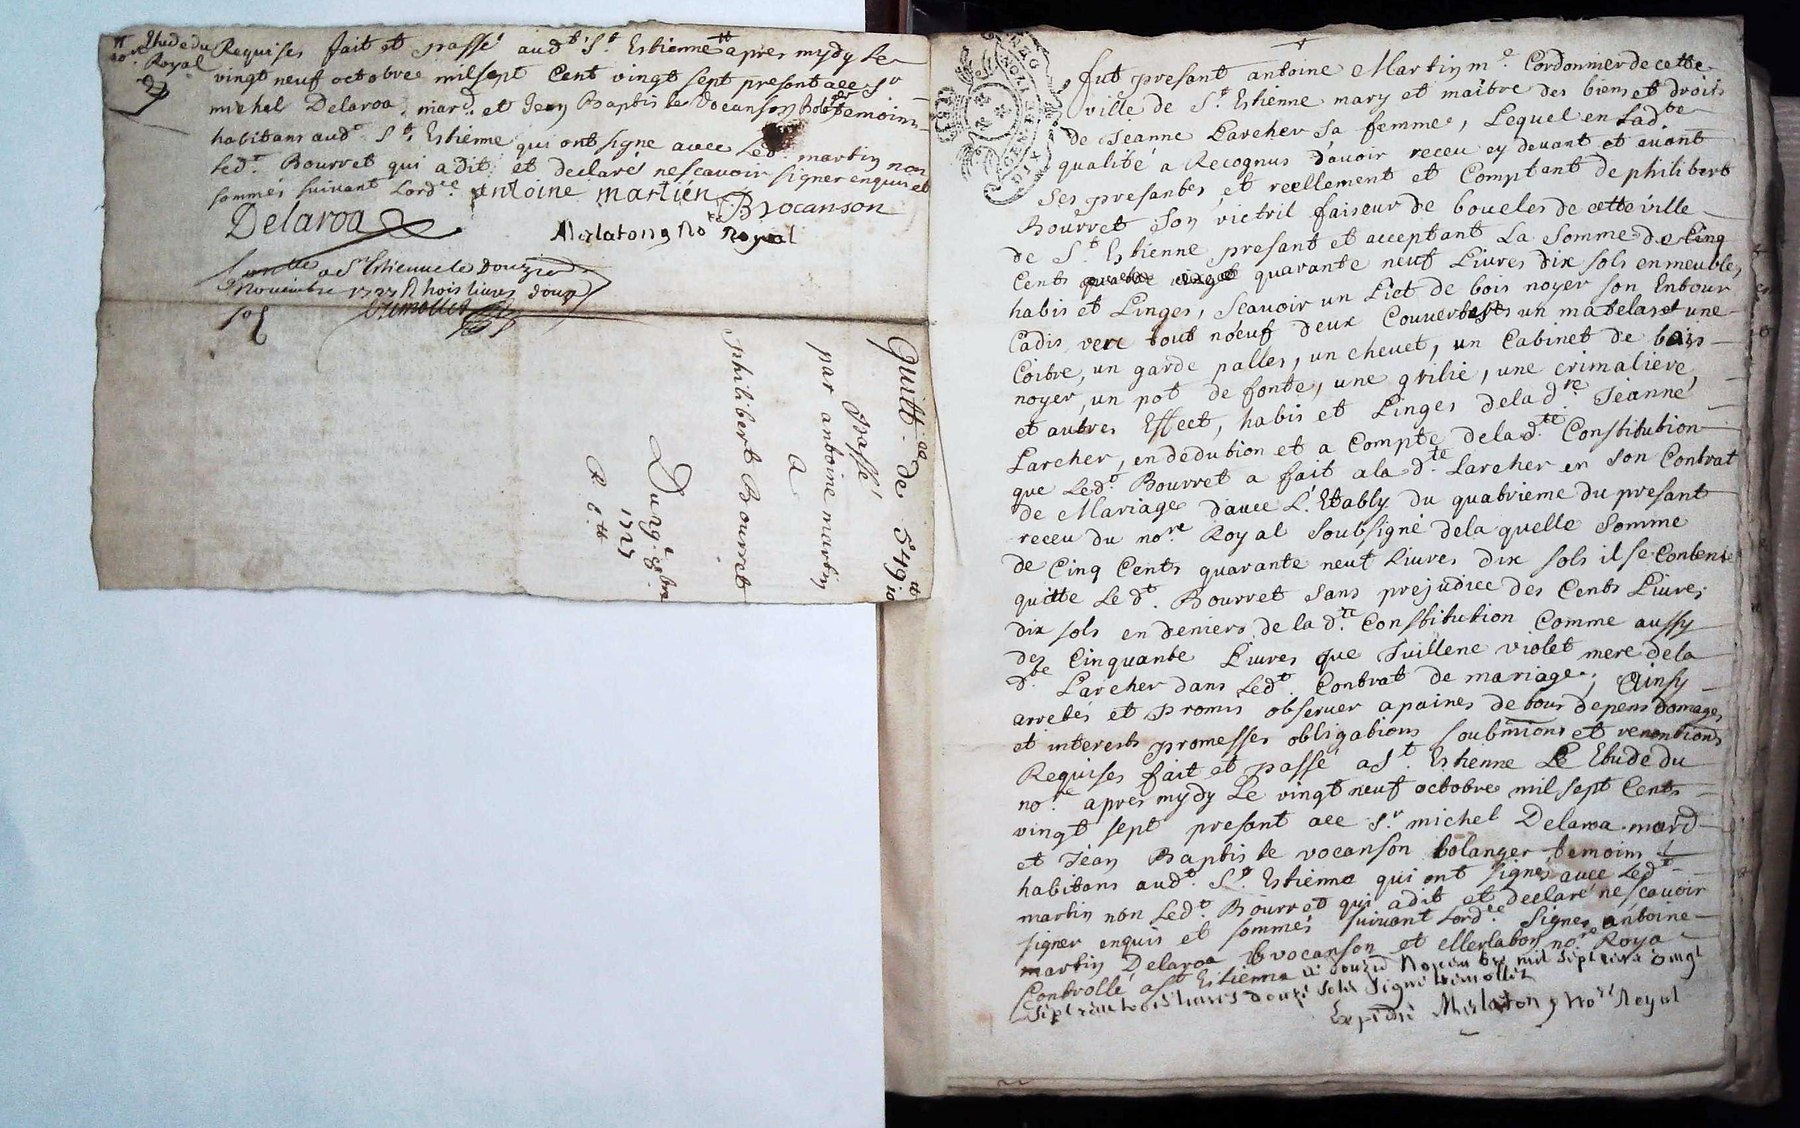 Etude du
no.re Royal
Requises fait et passé aud.t S.t Estienne apres mydy le
vingt neuf octobre mil sept Cent vingt sept presant ace S.r
michel Delaroa mar.d et Jean Baptiste Vocanson temoins
habitans aud.t S.t Estienne qui ont signe avec Led.t martin non
Led.t Bourret qui a dit et declaré ne scavoir signer enquis et
sommes suivant Lord.ce antoine martien
B Vocanson
Delaroa
Merlaton no.re Royal
a St Estienne le douzie
Novembre 1727 R trois livres douze
sol
Quitt.ce de 549 tt 10
Passé
par antoine martin
A
philibert Bourret
Du 29.e 8bre
1727
R 6 tt
GEN DE LYON
DIX DEN
fut presant antoine Martin m.e Cordonnier de cette
ville de S.t Estienne mary et maitre des biens et droits
de Jeanne Larcher sa femme, Lequel en Lad.te
qualité a Recognus d'avoir receu cy devant et avant
ses presantes, et reellement et Comptant de philibert
Bourret son victril faiseur de boucles de cette ville
de S.t Estienne presant et acceptant La somme de Cinq
Cents quarante neuf Livres dix sols en meubles,
habis et Linges, scavoir un Lict de bois noyer son Entour
Cadis vere tout nœuf deux Couvertes un matelas et une
Coitre, un garde palles, un chevet, un Cabinet de bois
noyer, un pot de fonte, une grilie, une crimaliere,
et autres Effect, habis et Linges de la d.te Jeanne
Larcher, en dedution et a Compte de la d.te Constitution
que Led.t Bourret a fait a la d.te Larcher en son Contrat
de Mariage d'avec L'Etably du quatrieme du presant
receu du no.re Royal soubsigné de la quelle somme
de Cinq Cents quarante neuf Livres dix sols il se Contente
quitte Le d.t Bourret sans prejudice des Cents Livres
dix sols en deniers de la d.te Constitution Comme aussy
des Cinquante Livres que Guillene violet mere de la
d.te Larcher dans Led.t Contrat de mariage; Ainsy
arretés et promis observer a paines de tous depens domages
et interests promesses obligations soubmitions et renontions
Requises fait et passé a S.t Estienne Le Etude du
no.re apres mydy Le vingt neuf octobre mil sept Cents
vingt sept presant ace S.r michel Delaroa mard
et Jean Baptiste vocanson bolanger temoins
habitans aud.t S.t Estienne qui ont signes avec Led.t
martin non Led.t Bourret qui a dit et declaré ne scavoir
signer enquis et sommés suivant Lord.ce Signes antoine
martin Delaroa B vocanson et Merlaton no.re Roya
Controllé a St Estienne le douzie Novembre mil sept cent vingt
sept reçu trois livres douze sols signé
Expédié Merlaton no.re Royal